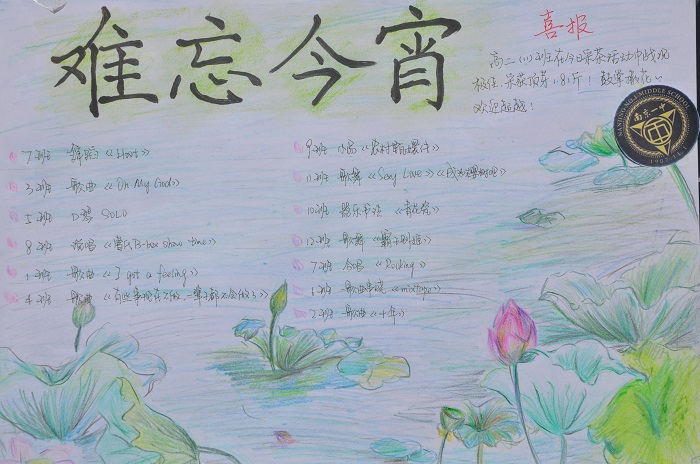 难忘今宵
喜报
高二(11)班在今日采茶活动中战况
极佳,采茶顶芽1.8斤!鼓掌撒花~
欢迎超越!
南京一中
NANJING NO.1 MIDDLE SCHOOL
1907
7班 舞蹈《
3班 歌曲《Oh My God》
5班 口琴 SOLO
8班 说唱《曹氏B-box show time》
1班 歌曲《I got a feeling》
4班 歌曲《有些事现在不做 一辈子都不会做了》
9班 小品《农村
11班 歌舞《Sexy Love》《
10班 器乐书法 《青花瓷》
12班 歌舞《霸王别姬》
7班 合唱《Rocking》
1班 歌曲串烧《mixtape》
2班 歌曲《十年》